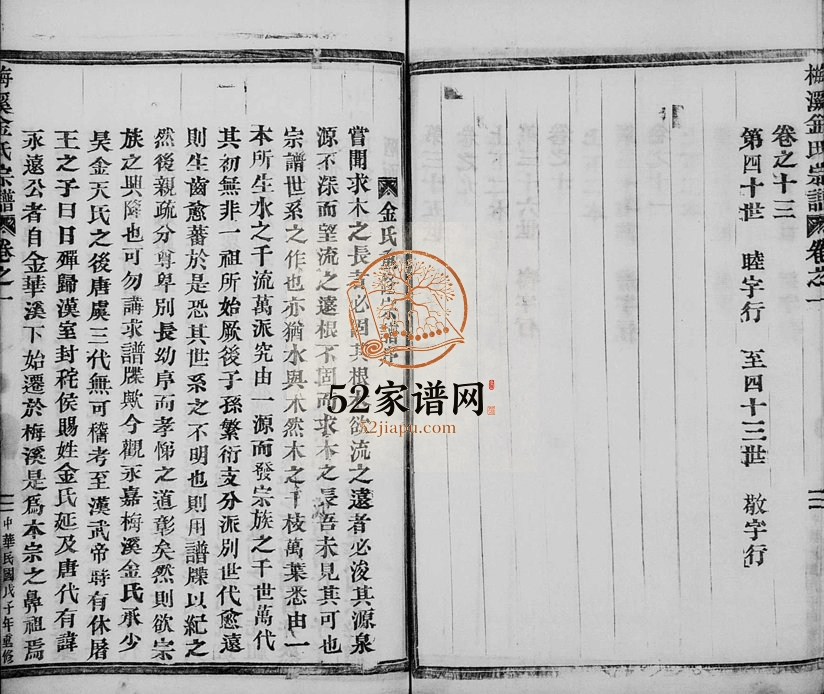 梅溪金氏宗譜 卷之一
卷之十三
第四十世 睦字行 至四十三世 敬字行
金氏重修宗譜序
嘗聞求木之長者必固其根本欲流之遠者必浚其源泉
源不深而望流之遠根不固而求木之長吾未見其可也
宗譜世系之作也亦猶水與木然木之千枝萬葉悉由一
本所生水之千流萬派究由一源而發宗族之千世萬代
其初無非一祖所始厥後子孫繁衍支分派別世代愈遠
則生齒愈蕃於是恐其世系之不明也則用譜牒以紀之
然後親疏分尊卑別長幼序而孝悌之道彰矣然則欲宗
族之興隆也可勿講求譜牒歟今觀永嘉梅溪金氏承少
昊金天氏之後唐虞三代無可稽考至漢武帝時有休屠
王之子曰日殫歸漢室封秺侯賜姓金氏延及唐代有諱
永遠公者自金華溪下始遷於梅溪是爲本宗之鼻祖焉
梅溪金氏宗譜 卷之一
二
中華民國戊子年重修
52家谱网
52jiapu.com